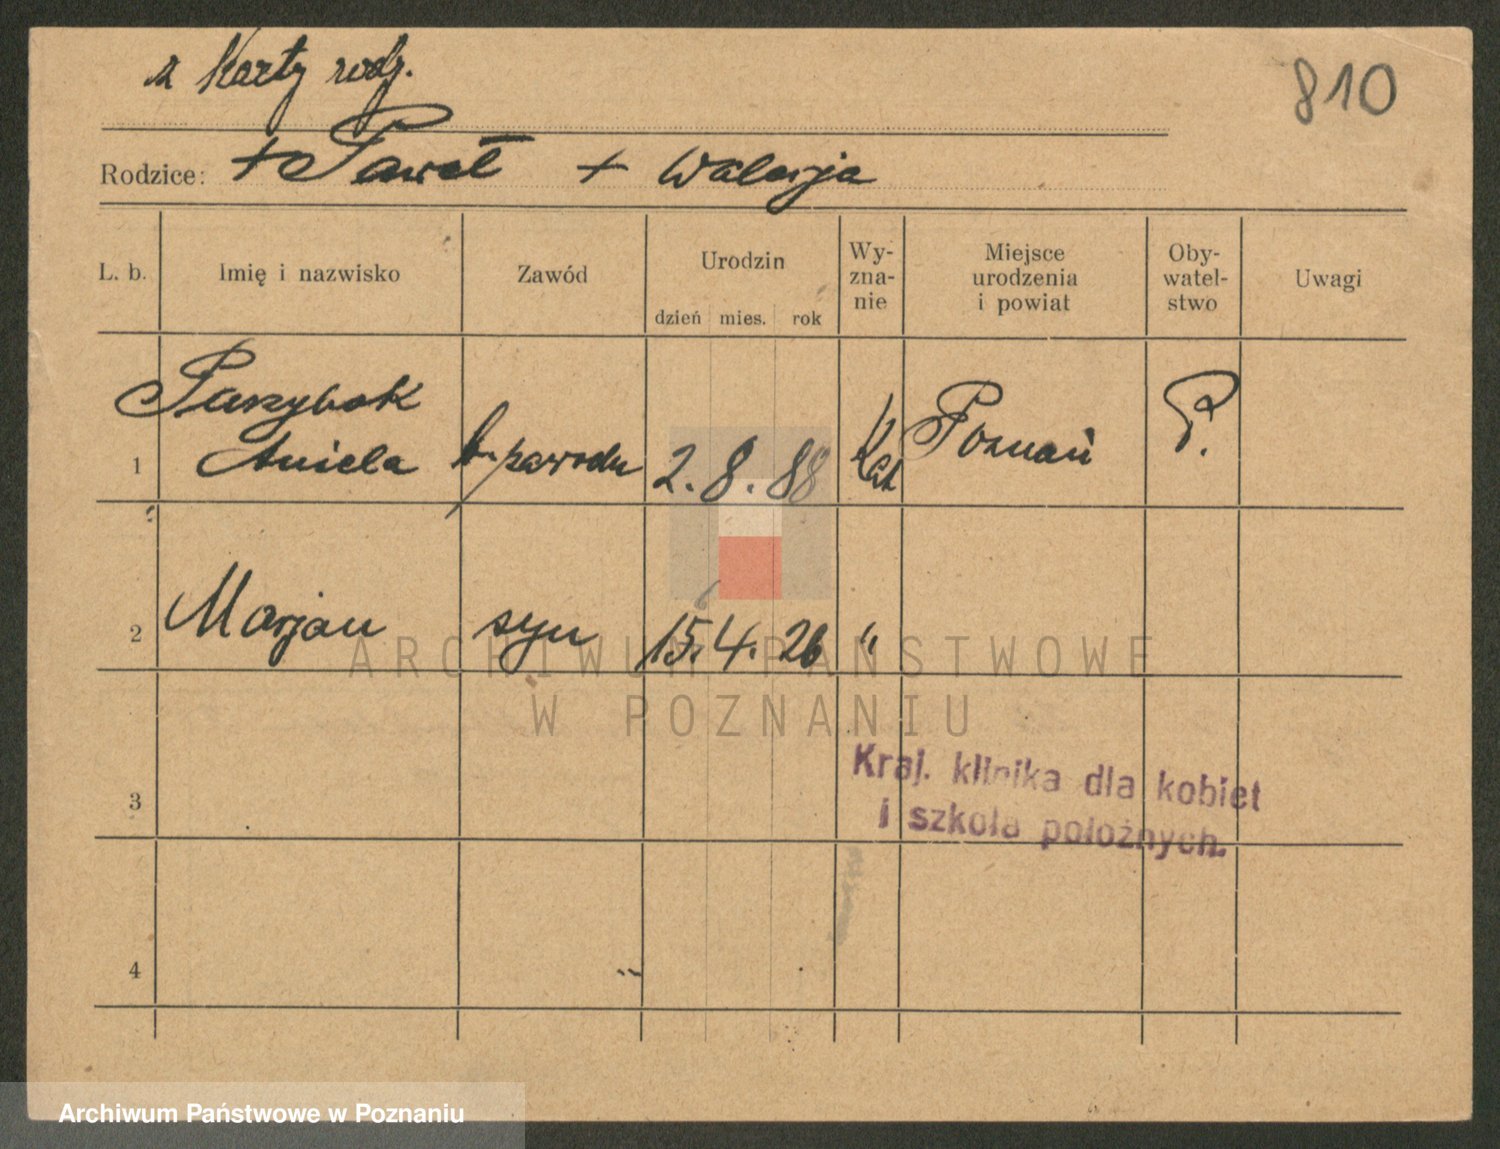 z Karty rodz.
810
Rodzice: + Paweł + Walerja
L. b. Imię i nazwisko Zawód Urodzin dzień mies. rok Wy-zna-nie Miejsce urodzenia i powiat Oby-watel-stwo Uwagi
Parzybok
1 Aniela b. zawodu 2. 8. 88 Kat Poznań P.
2 Marjan syn 15. 4. 26 "
ARCHIWUM PAŃSTWOWE
W POZNANIU
Kraj. klinika dla kobiet
i szkoła położnych.
3
4
Archiwum Państwowe w Poznaniu